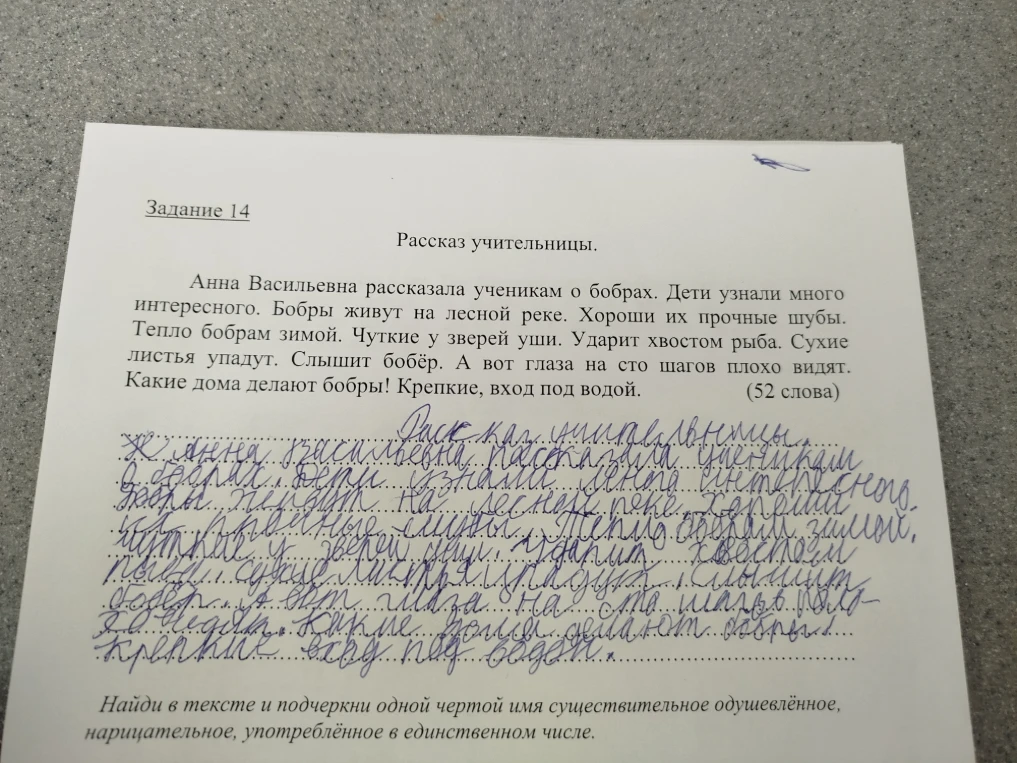 Задание 14
Рассказ учительницы.
Анна Васильевна рассказала ученикам о бобрах. Дети узнали много
интересного. Бобры живут на лесной реке. Хороши их прочные шубы.
Тепло бобрам зимой. Чуткие у зверей уши. Ударит хвостом рыба. Сухие
листья упадут. Слышит бобёр. А вот глаза на сто шагов плохо видят.
Какие дома делают бобры! Крепкие, вход под водой. (52 слова)
Рассказ учительницы.
Анна Васильевна рассказала ученикам
о бобрах. Дети узнали интересного.
бобры живут на лесной реке. Хороши
их прочные шубы. Тепло бобрам зимой.
чуткие у зверей уши. Ударит хвостом
сухие листья упадут. Слышит
бобёр. А вот глаза на ста шагов
Какие дома делают бобры!
крепкие вход под водой.
Найди в тексте и подчеркни одной чертой имя существительное одушевлённое,
нарицательное, употреблённое в единственном числе.